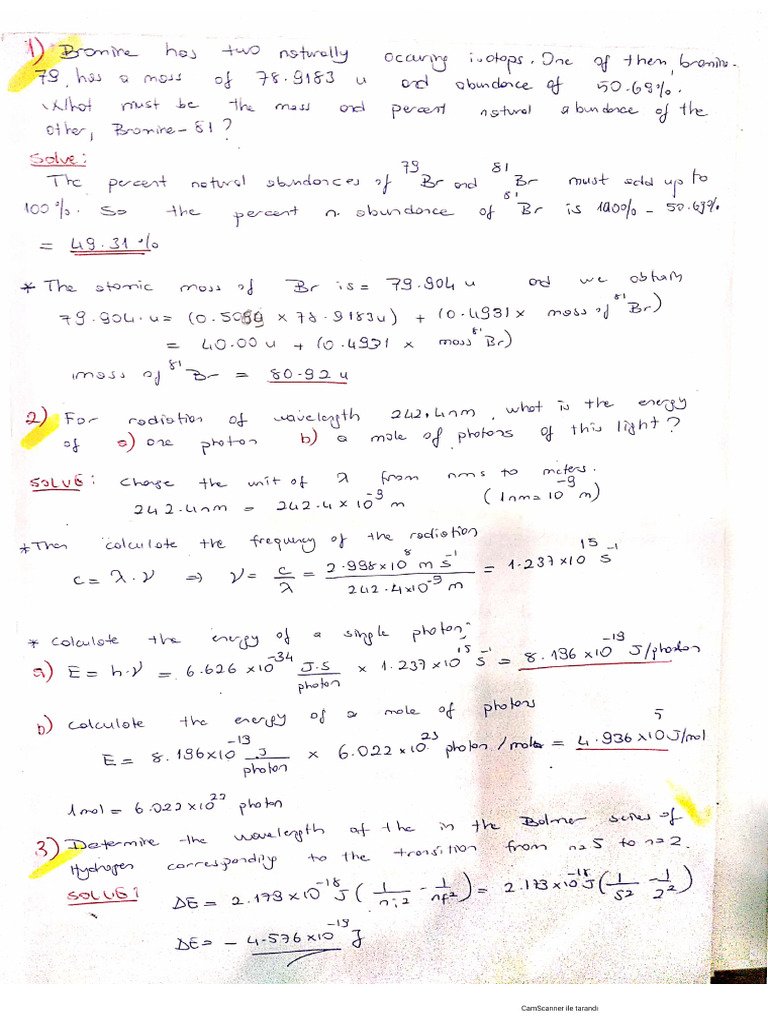 1) Bromine has two naturally occuring isotops. One of them, bromine-
79, has a mass of 78.9183 u and abundance of 50.69%.
What must be the mass and percent natural abundance of the
other, Bromine-81?
Solve:
The percent natural abundances of ⁷⁹Br and ⁸¹Br must add up to
100%. So the percent n. abundance of ⁸¹Br is 100% - 50.69%
= 49.31%
* The atomic mass of Br is = 79.904 u and we obtain
79.904 u = (0.5069 × 78.9183u) + (0.4931 × mass of ⁸¹Br)
= 40.00 u + (0.4931 × mass ⁸¹Br)
mass of ⁸¹Br = 80.92 u
2) For radiation of wavelength 242.4nm, what is the energy
of a) one photon b) a mole of photons of this light?
SOLVE: Change the unit of λ from nms to meters.
242.4nm = 242.4 × 10⁻⁹ m (1nm = 10⁻⁹ m)
*Then calculate the frequency of the radiation
c = λ.ν ⇒ ν = c/λ = 2.998×10⁸ m s⁻¹ / 242.4×10⁻⁹ m = 1.237×10¹⁵ s⁻¹
* Calculate the energy of a single photon:
a) E = h.ν = 6.626 ×10⁻³⁴ J.s/photon × 1.237×10¹⁵ s⁻¹ = 8.196 ×10⁻¹⁹ J/photon
b) Calculate the energy of a mole of photons
E = 8.196×10⁻¹⁹ J/photon × 6.022×10²³ photon/mole = 4.936×10⁵ J/mol
1mol = 6.022×10²³ photon
3) Determine the wavelength of the in the Balmer series of
Hydrogen corresponding to the transition from n=5 to n=2.
SOLVE: ΔE = 2.179×10⁻¹⁸ J (1/ni² - 1/nf²) = 2.179×10⁻¹⁸ J (1/5² - 1/2²)
ΔE = - 4.576×10⁻¹⁹ J
CamScanner ile tarandı